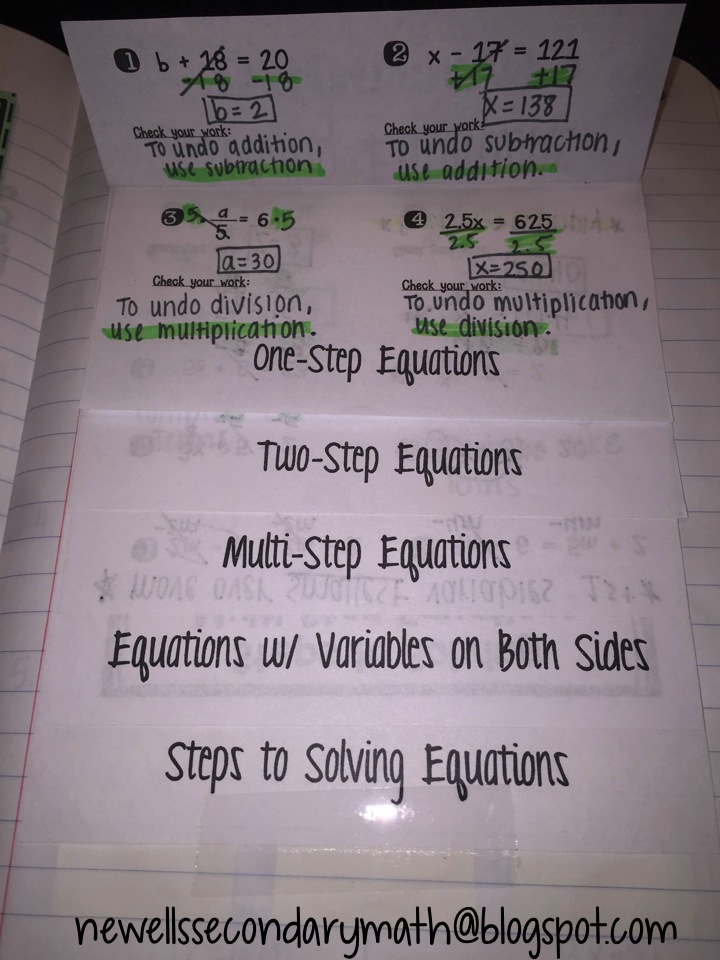 1 b + 18 = 20
-18 -18
b = 2
Check your work:
To undo addition,
use subtraction
2 x - 17 = 121
+17 +17
x = 138
Check your work:
To undo subtraction,
use addition.
3 5· a/5 = 6·5
a = 30
Check your work:
To undo division,
use multiplication.
4 2.5x = 625
2.5 2.5
x = 250
Check your work:
To undo multiplication,
use division.
One-Step Equations
Two-Step Equations
Multi-Step Equations
Equations w/ Variables on Both Sides
Steps to Solving Equations
newellssecondarymath@blogspot.com